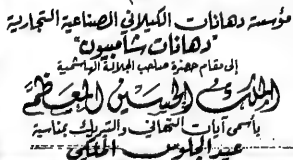 مؤسسة دهانات الكيلاني الصناعية التجارية
"دهانات شامبيون"
إلى مقام حضرة صاحب الجلالة الهاشمية
الملك الحسين المعظم
بأسمى آيات التهاني والتبريك بمناسبة
عيد الجلوس الملكي